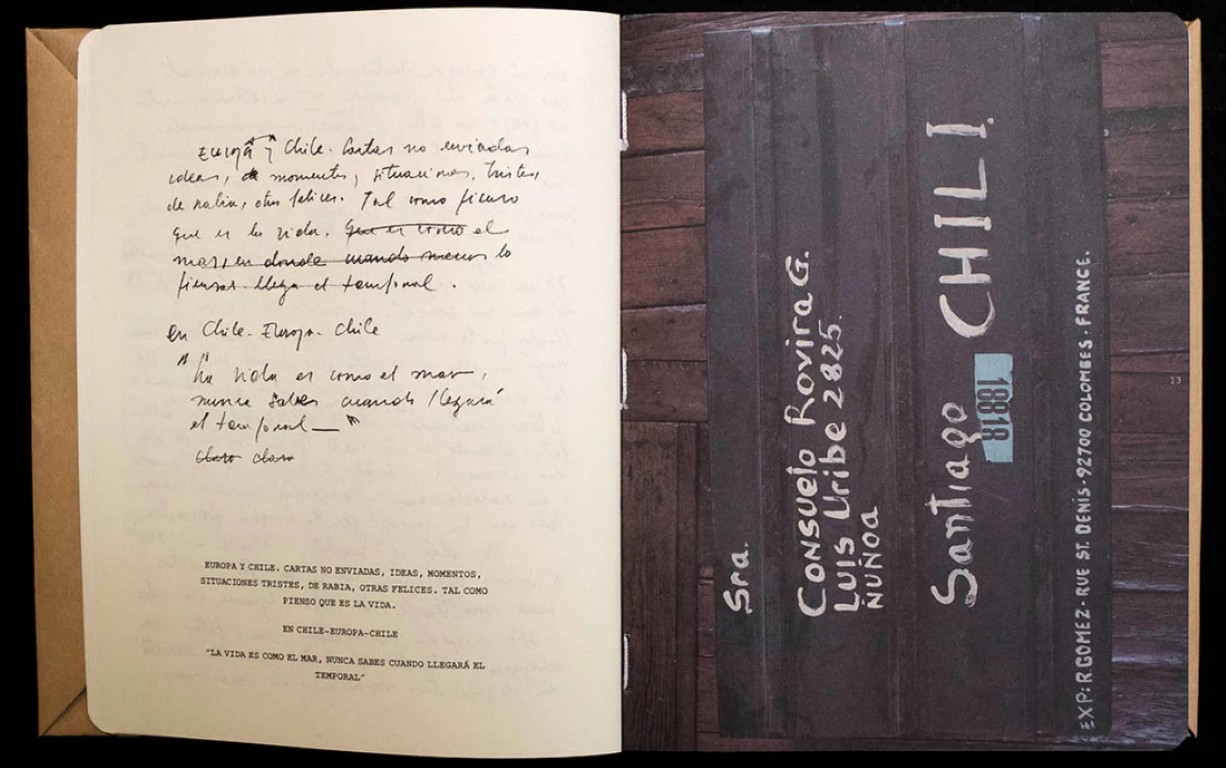 Europa y Chile. Cartas no enviadas
ideas, de momentos, situaciones, tristes,
de rabia, otras felices. Tal como pienso
que es la vida. Que es como el
mar, en donde cuando menos lo
piensas llega el temporal.
en Chile-Europa-Chile
"La vida es como el mar,
nunca sabes cuando llegará
el temporal"
claro claro
EUROPA Y CHILE. CARTAS NO ENVIADAS, IDEAS, MOMENTOS,
SITUACIONES TRISTES, DE RABIA, OTRAS FELICES. TAL COMO
PIENSO QUE ES LA VIDA.
EN CHILE-EUROPA-CHILE
"LA VIDA ES COMO EL MAR, NUNCA SABES CUANDO LLEGARÁ EL
TEMPORAL"
Sra.
Consuelo Rovira G.
Luis Uribe 2825.
ÑUÑOA
Santiago CHILI.
18818
EXP: R.GOMEZ · RUE ST. DENIS · 92700 COLOMBES · FRANCE.
13